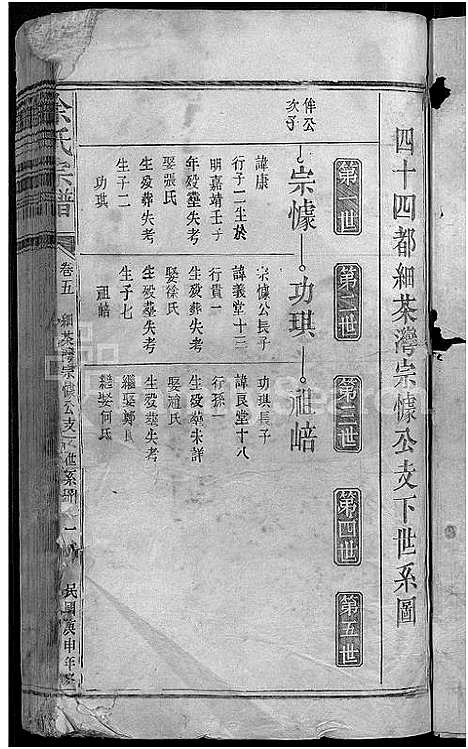 四十四都細茶灣宗懅公支下世系圖
第一世
第二世
第三世
第四世
第五世
伴公
次子
宗懅
功琪
祖㟝
諱康
行子二生於
明嘉靖壬子
年歿墓失考
娶張氏
生歿葬失考
生子二
功琪
宗懅公長子
諱義堂十三
行貴一
生歿葬失考
娶徐氏
生歿墓失考
生子七
祖㟝
功琪長子
諱良堂十八
行孫一
生歿葬未詳
娶逭氏
生歿墓失考
繼娶鄭氏
繼娶何氏
余氏宗譜
卷五
細茶灣宗懅公支下世系圖
一
民國庚申年